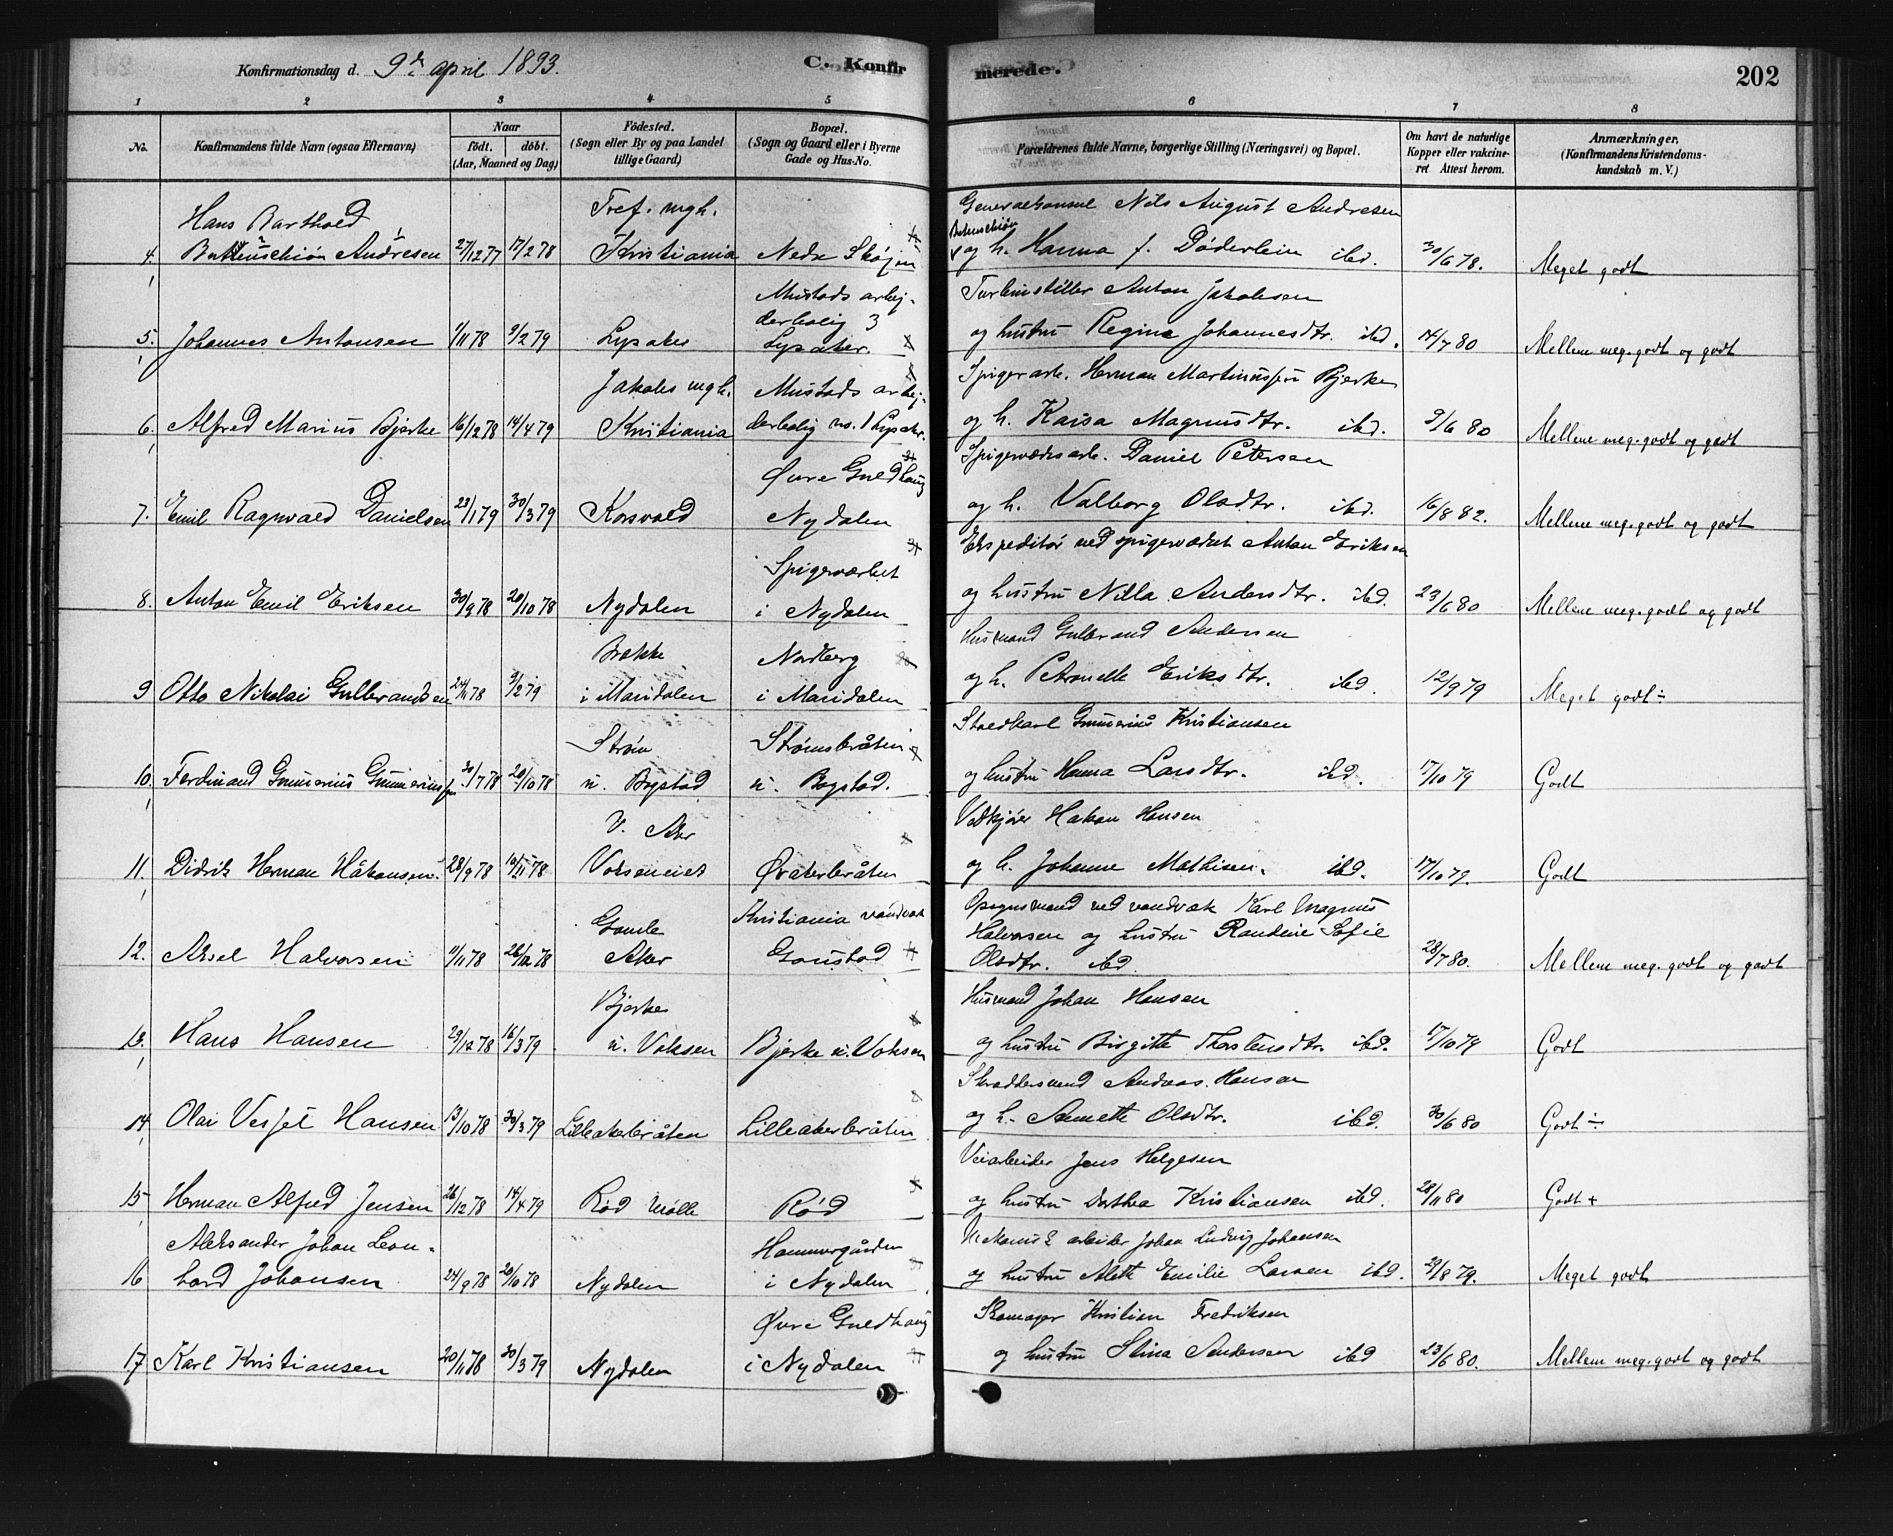 Konfirmationsdag d. 9de april 1893. C. Konfirmerede. 202
1 2 3 4 5 6 7 8
No. Konfirmandens fulde Navn (ogsaa Efternavn) Naar født. døbt. (Aar, Maaned og Dag) Fødested. (Sogn eller By og paa Landet tillige Gaard) Bopæl. (Sogn og Gaard eller i Byerne Gade og Hus-No. Forældrenes fulde Navne, borgerlige Stilling (Næringsvei) og Bopæl. Om havt de naturlige Kopper eller vakcineret Attest herom. Anmærkninger. (Konfirmandens Kristendomskundskab m. V.)
Hans Barthold Tref. mgh. Generalkonsul Nils August Andresen
Butenschøn
4. Butenschøn Andresen 27/12 77 17/2 78 Kristiania Nedre Skøjen og h. Hanna f. Døderlein ibd. 30/6 78. Meget godt
Mustads arbej- Turbinstiller Anton Jakobsen
derbolig 3
5. Johannes Antonsen 1/11 78 9/2 79 Lysaker Lysaker. og hustru Regine Johannesdtr. ibd. 14/7 80 Mellem meg. godt og godt
Jakobs mgh. Mustads arbej- Spigerarb. Herman Martinussen Bjerke
6. Alfred Marius Bjerke 16/12 78 14/4 79 Kristiania derbolig no. 1 Lysaker. og h. Kaisa Magnusdtr. ibd. 9/6 80 Mellem meg. godt og godt
Øvre Guldhaug Spigerværksarb. Daniel Petersen
7. Emil Ragnvald Danielsen 23/1 79 30/3 79 Korsvold Nydalen og h. Valborg Olsdtr. ibd. 16/8 82. Mellem meg. godt og godt
Spigerværket Ekspeditør ved spigerværket Anton Eriksen
8. Anton Emil Eriksen 30/9 78 20/10 78 Nydalen i Nydalen og hustru Nilla Andersdtr. ibd. 23/6 80 Mellem meg. godt og godt
Brekke Nordberg Husmand Gulbrand Andersen
9 Otto Nikolai Gulbrandsen 24/11 78 9/2 79 i Maridalen i Maridalen og h. Petronelle Eriksdtr. ibd. 12/9 79 Meget godt ÷
Strøm Strømsbråten Staldkarl Gunnerius Kristiansen
10. Ferdinand Gunnerius Gunneriussen 30/7 78 20/10 78 u. Bogstad u. Bogstad. og hustru Hanna Larsdtr. ibd. 17/10 79 Godt
V. Aker Vedkjører Hakon Hansen
11. Didrik Herman Håkonsen 28/9 78 10/11 78 Vokseneiet Øvaterbråten og h. Johanne Mathisen. ibd. 17/10 79. Godt
Gamle Kristiania vandvæk Opsynsmand ved vandvæk Karl Magnus
Halvorsen og hustru Randine Sofie
12. Aksel Halvorsen 1/11 78 26/12 78 Aker Gaustad Olsdtr. ibd. 28/7 80. Mellem meg. godt og godt
Bjerke Husmand Johan Hansen
13. Hans Hansen 29/12 78 16/3 79 u. Voksen Bjerke u. Voksen og hustru Birgitte Thorstensdtr. ibd. 17/10 79 Godt
Skræddersvend Andreas Hansen
14. Olai Vesjel Hansen 13/10 78 30/3 79 Lilleakerbråten Lilleakerbråten og h. Annette Olsdtr. ibd. 30/6 80 Godt ÷
Veiarbeider Jens Helgesen
15 Herman Alfred Jensen 26/12 78 14/4 79 Rød Mølle Rød og hustru Dorthea Kristiansen ibd. 28/11 80 Godt +
Aleksander Johan Leon- Hammergården Mekanisk arbeider Johan Ludvig Johansen
16 hard Johansen 24/9 78 20/10 78 Nydalen i Nydalen og hustru Aleth Emilie Larsen ibd. 29/8 79. Meget godt
Øvre Guldhaug Skomager Kristian Fredriksen
17 Karl Kristiansen 20/11 78 30/3 79 Nydalen i Nydalen og hustru Stina Andersen ibd 23/6 80. Mellem meg. godt og godt